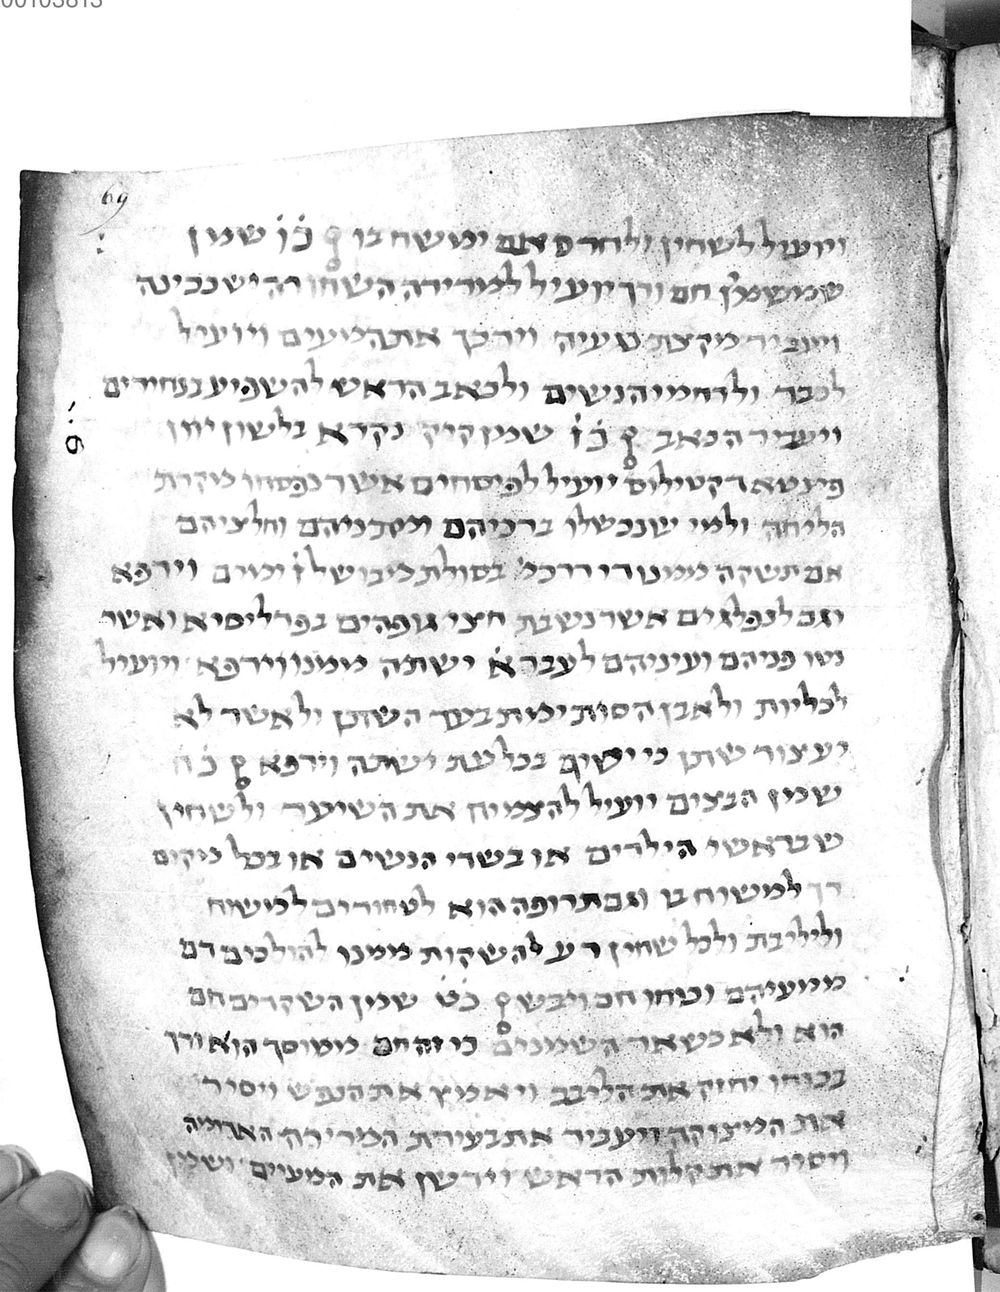 00103813
69
ויועיל לשחין ולחרס אם ימשח בו פ כ֗ו֗ שמן
שמשמין חם ורך יועיל למרירה השחורה יש נכינה
ויעביר מקצת געיה וירכך את המעים ויועיל
לכבד ולרחמי הנשים ולכאב הראש להשפיע בנחירים
ויעביר הכאב פ כ֗ז֗ שמן קיק נקרא בלשון יוון
פינטא דקטילוס יועיל לפיסחים אשר נפסחו מקרות
הליחה ולמי שנכשלו ברכיהם ומתניהם וחלציהם
אם תשקה ממנו די דרכמ׳ בסולת כיבוש ל ז֗ ימים וירפא
וגם לנפלגים אשר נשבת חצי גופהים בפרליסיא ואשר
נטו פניהם ועיניהם לעבר א֗ ישתה ממנו וירפא ויועיל
לכליות ולאבן הסותימת בעד השתן ולאשר לא
יעצור שתן כי ישיף בכל עת ישתה וירפא פ כ֗ח֗
שמן הבצים יועיל להצמיח את השיער ולשחין
שבראשי הילדים או בשדי הנשים או בכל מקום
רך למשוח בו וגם תרופה הוא לטחורים למשוח
וליליבת ולכל שחין רע להשקות ממנו להולכים דם
ממעיהם וכוחו חם ויבש פ כ֗ט֗ שמן השקדים חם
הוא ולא כשאר השמנים כי זה חם ממוסך הוא ורך
בכוחו יחזק את הליבב ויאמץ את הנפש ויסיר
את המצוקה ויעביר את בעירת המרירה האדומה
ויסיר את קלות הראש וידשן את המעיים ושמן